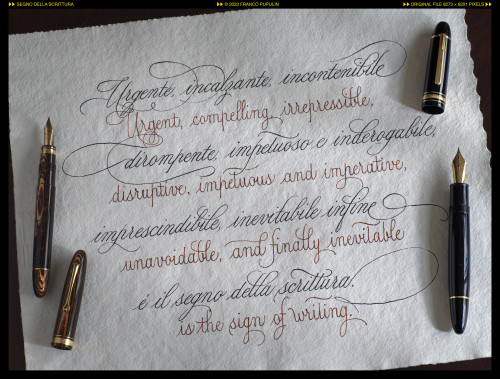 SEGNO DELLA SCRITTURA
© 2023 FRANCO PUPULIN
ORIGINAL FILE 8273 × 6201 PIXELS
Urgente, incalzante, incontenibile
Urgent, compelling, irrepressible,
dirompente, impetuoso e inderogabile,
disruptive, impetuous and imperative,
imprescindibile, inevitabile infine
unavoidable, and finally inevitable
é il segno della scrittura.
is the sign of writing.